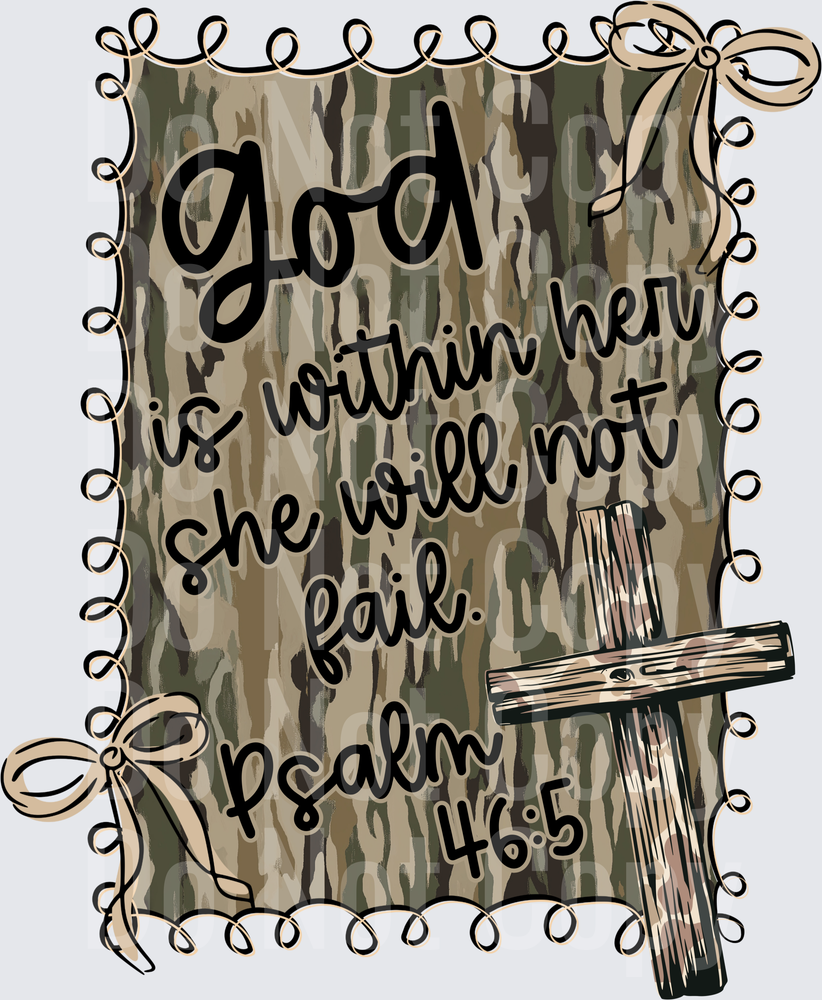 god
is within her
she will not
fail.
Psalm
46:5
Do Not Copy
Do Not Copy
Do Not Copy
Do Not Copy
Do Not Copy
Do Not Copy
Do Not Copy